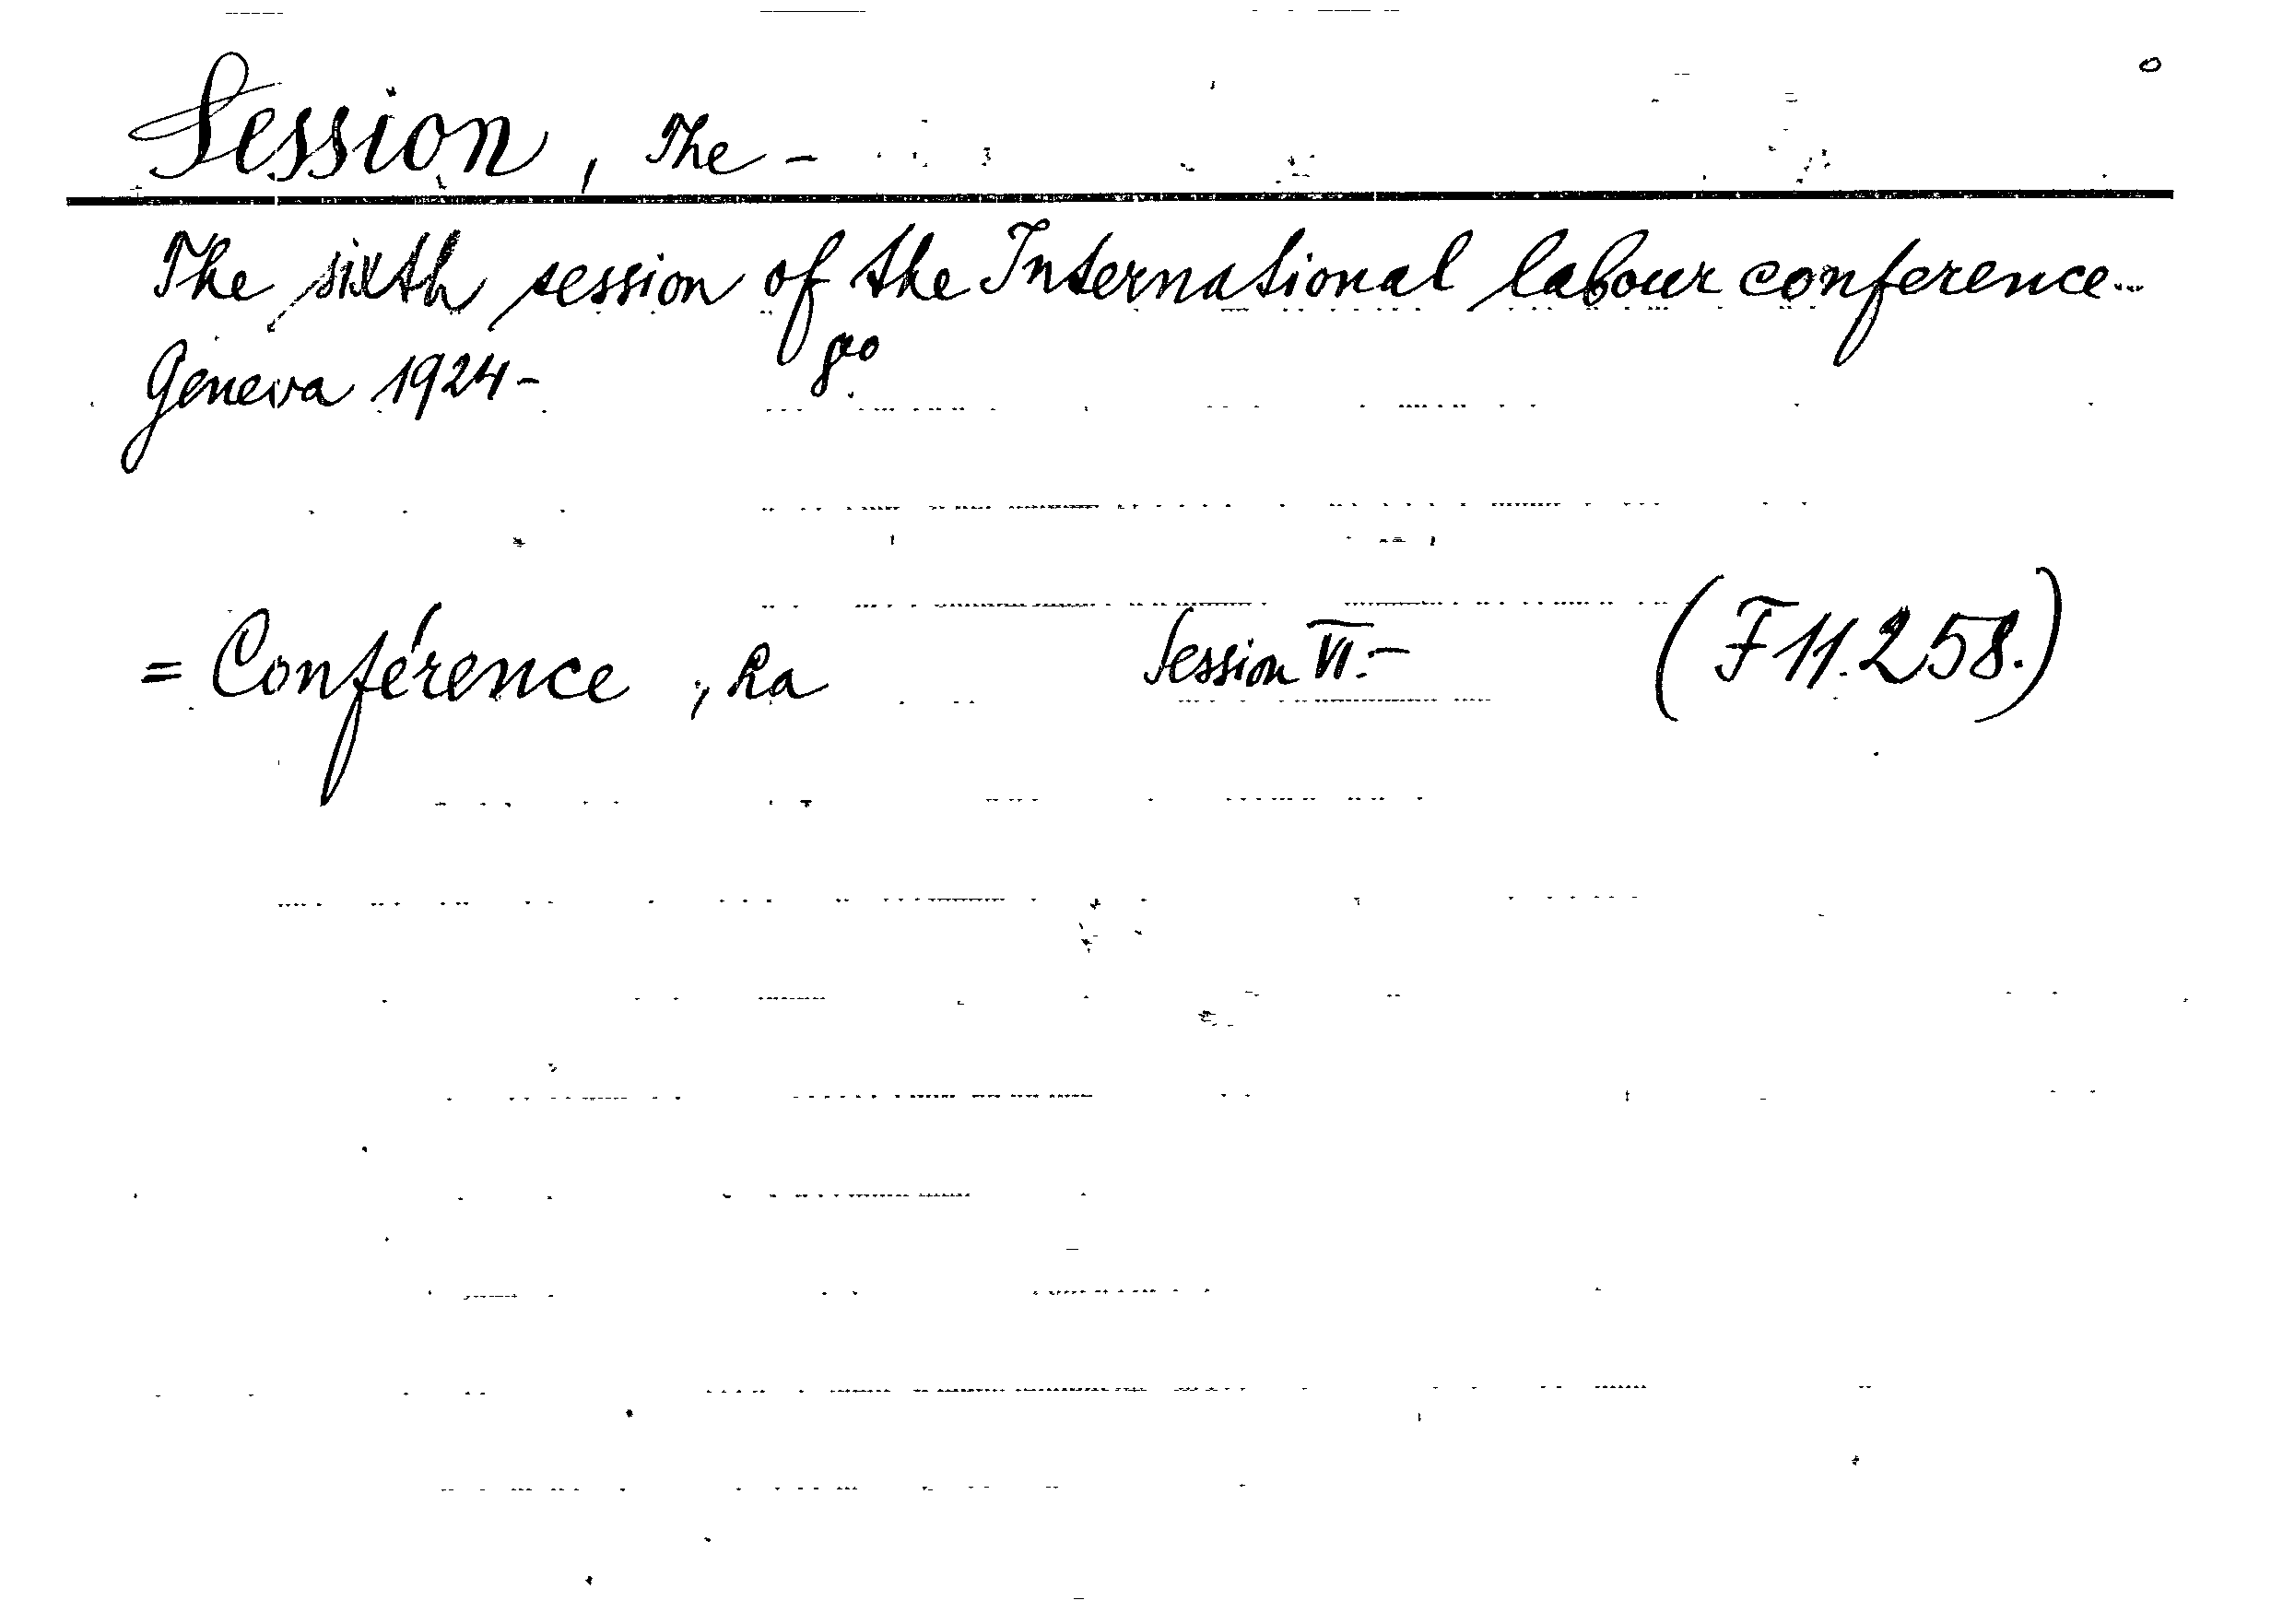 Session, The –
The sixth session of the International labour conference...
Geneva 1924 – 8°
= Conférence, La Session VI. – (F 11.258.)